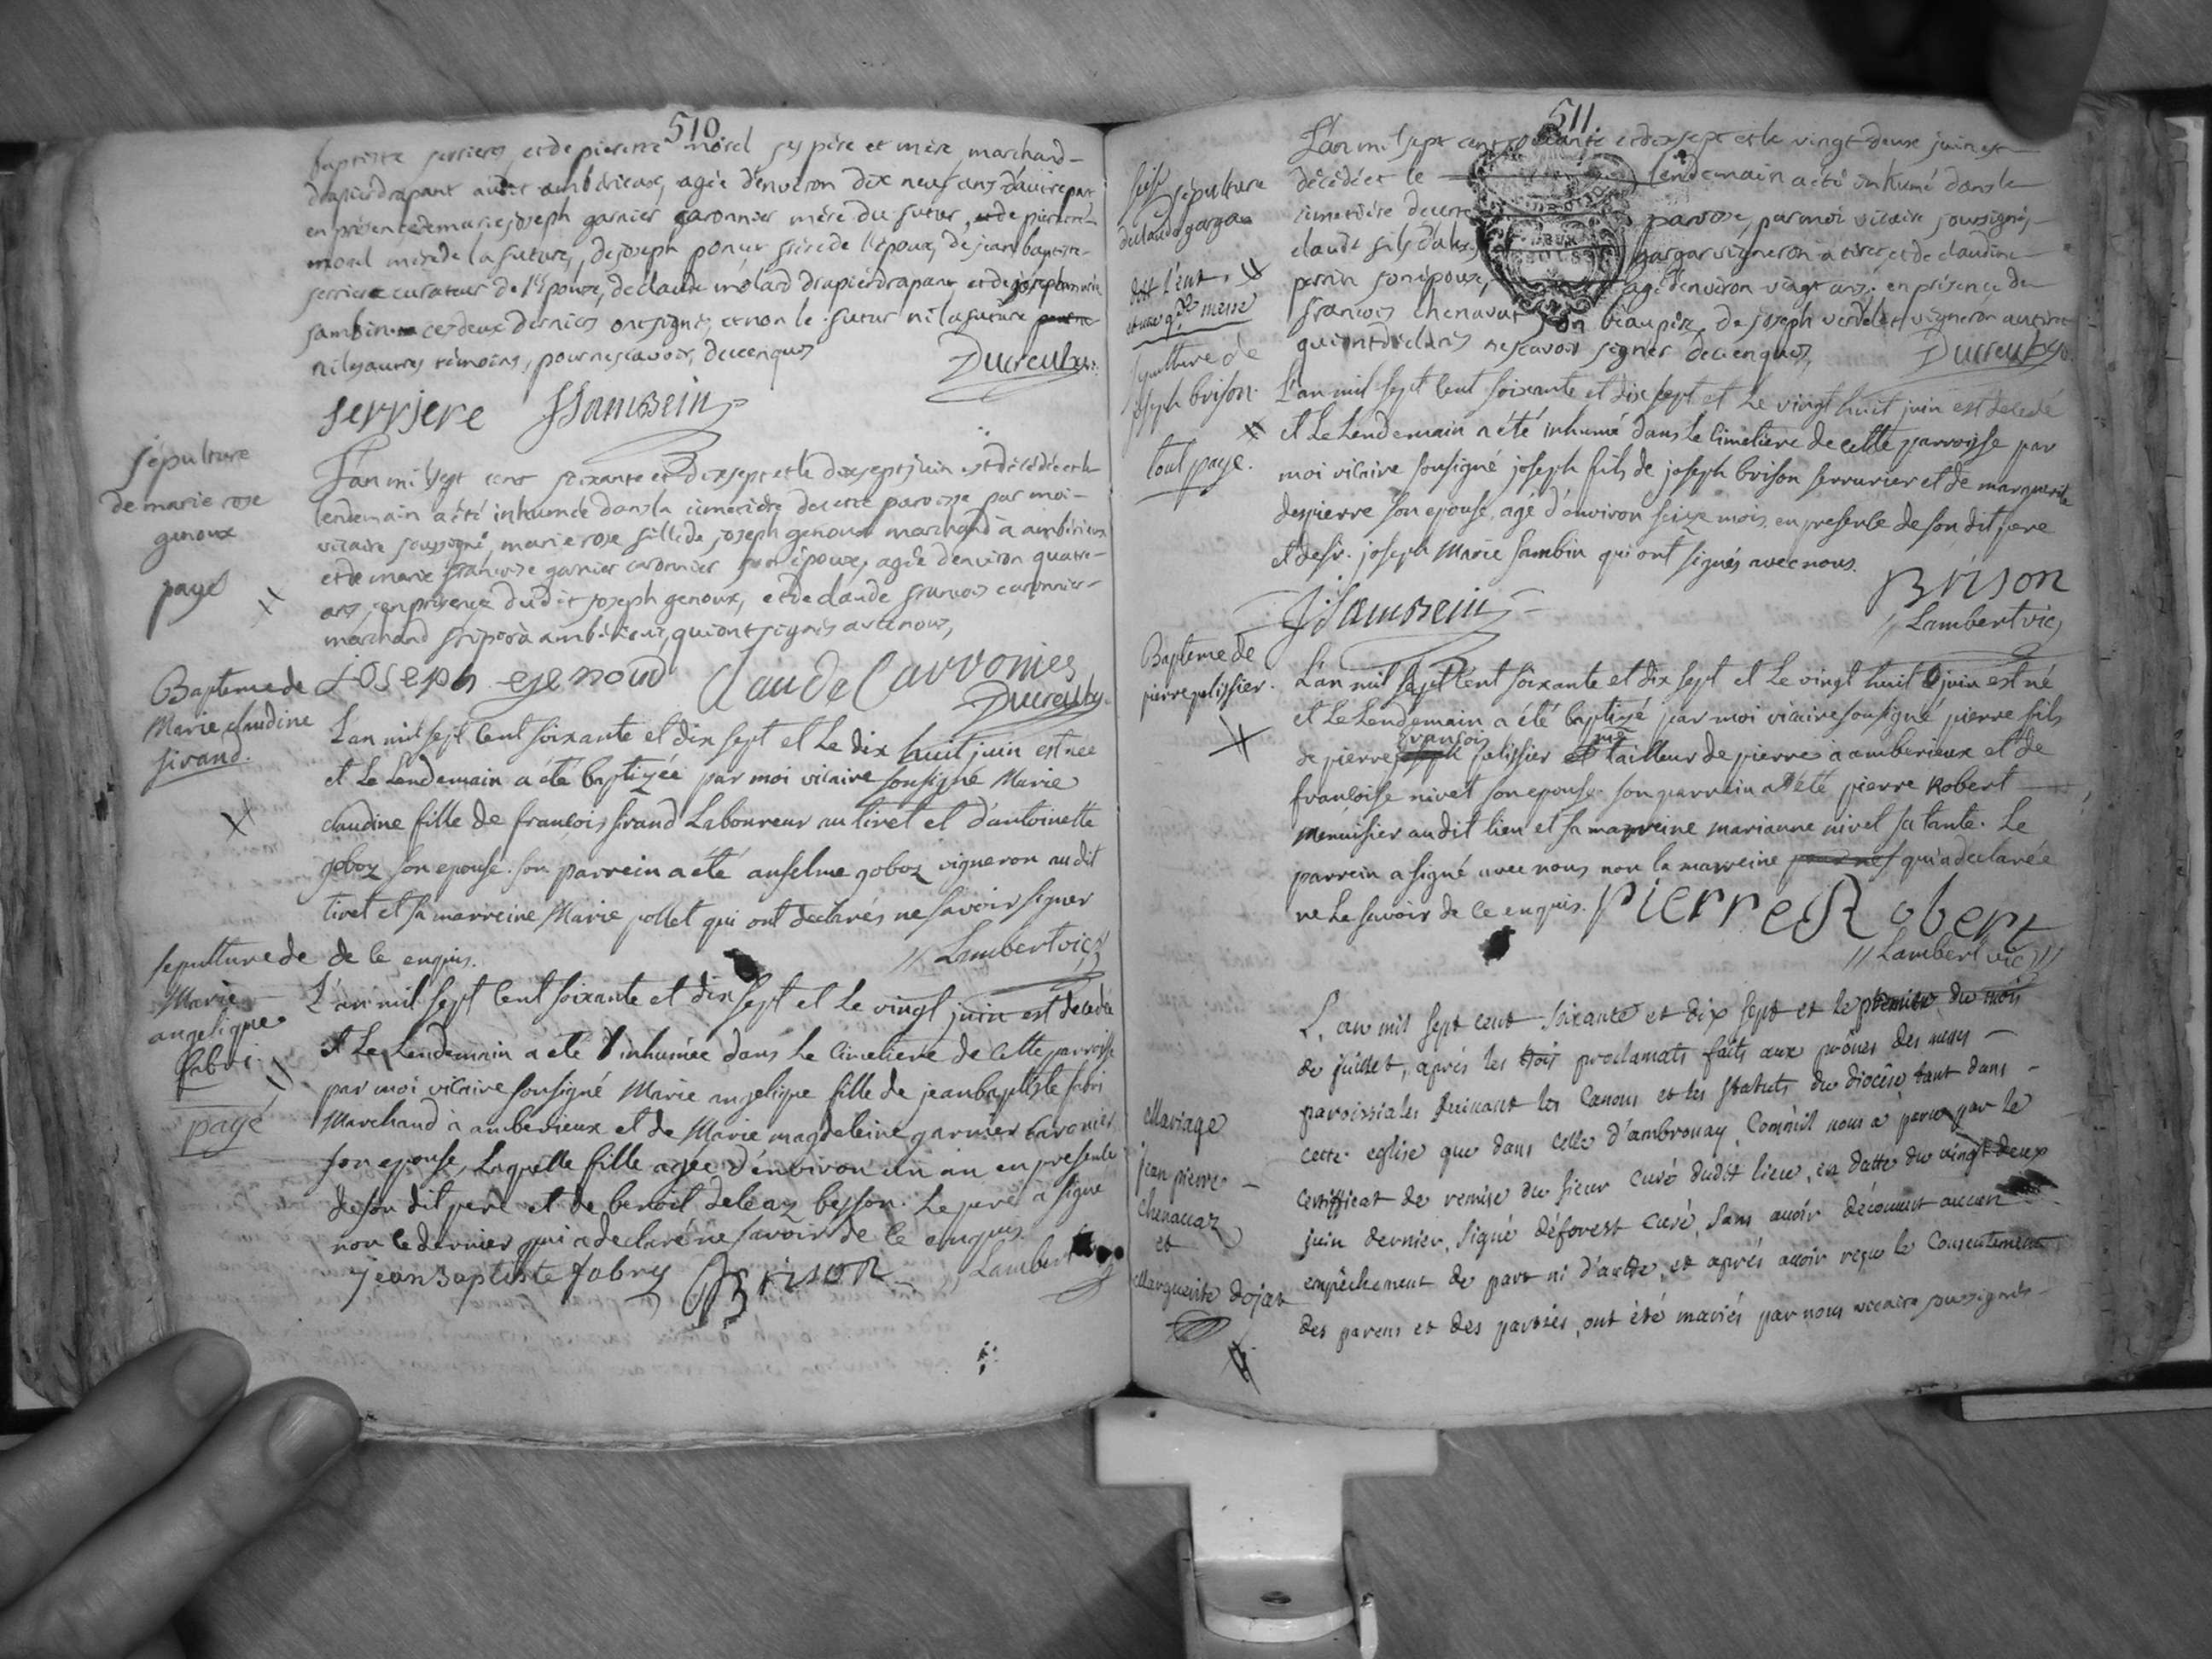 510.
baptiste serriere, et de pierrette morel ses pere et mere, marchand
drapier drapant audit amberieux, agée d'environ dix neuf ans d'autre part
en présence de marie joseph garnier caronnier mére du futur, et de pierrette
morel mere de la future, de joseph poncet frère de l'époux, de jean baptiste
serriere curateur de l'épouse, de claude molard drapier drapant, et de joseph marie
sambin ces deux derniers ont signé, et non le futur ni la future
ni les autres témoins, pour ne scavoir, de ce enquis
Ducreux
serrjere JSambein
sépulture
de marie rose
genoux
payé
L'an mil sept cent soixante et dix sept et le dix sept juin est décédée et le
lendemain a été inhumée dans la cimetiére de cette paroisse par moi
vicaire soussigné, marie rose fille de joseph genoux marchand à ambérieux
et de marie francoise garnier caronnier son épouse, agée d'environ quatre
ans, en présence dudit joseph genoux, et de claude francois caronnier
marchand fripier à ambérieux, qui ont signés avec nous,
joseph genoud Claude Carronier
Ducreux
Bapteme de
Marie claudine
sirand.
L'an mil sept cent soixante et dix sept et Le dix huit juin est née
et Le Lendemain a été baptizée par moi vicaire sousigné Marie
claudine fille de francois sirand Laboureur au tiret et d'antoinette
goboz son epouse. son parrein a été anselme goboz vigneron audit
tiret et sa marreine Marie pollet qui ont declarés ne savoir signer
de ce enquis.
// Lambert vic //
sepulture de
Marie
angelique
fabri
payé
L'an mil sept cent soixante et dix sept et Le vingt juin est decedée
et Le Lendemain a été inhumée dans Le Cimetiere de cette parroisse
par moi vicaire sousigné Marie angelique fille de jean baptiste fabri
Marchand à amberieux et de Marie magdeleine garnier caronier
son epouse, Laquelle fille agée d'environ un an en presence
de son dit pere et de benoit deleaz besson. Le pere a signé
non le dernier qui a declaré ne savoir de ce enquis.
jean Baptiste fabry Brison Lambert
511.
sépulture
de claude gargar
doit l'ent.
et une gde messe
L'an mil sept cent soixante et dix sept et le vingt deux juin est
décédé et le lendemain a été inhumé dans le
cimetiére de cette paroisse, par moi vicaire soussigné,
claude fils d'alex gargar vigneron a tiret, et de claudine
perrin son épouse, agé d'environ vingt ans; en présence de
françois chenavat son beaupére, de joseph verdelet vigneron au tiret
qui ont déclarés ne scavoir signer de ce enquis,
Ducreux
sépulture de
joseph brison.
tout payé.
L'an mil sept cent soixante et dix sept et Le vingt huit juin est decedé
et Le Lendemain a été inhumé dans le Cimetiere de cette parroisse par
moi vicaire sousigné joseph fils de joseph brison serrurier et de marguerite
despierre son epouse, agé d'environ seize mois, en presence de son dit pere
et de sr. joseph Marie sambin qui ont signés avec nous.
JSambein Brison
// Lambert vic
Bapteme de
pierre pelissier.
L'an mil sept cent soixante et dix sept et Le vingt huit juin est né
et Le Lendemain a été baptizé par moi vicaire sousigné pierre fils
francois me
de pierre pelissier tailleur de pierre à amberieux et de
francoise nivet son epouse. son parrein a été pierre Robert
menuisier audit lieu et sa marreine marianne nivet sa tante. Le
parrein a signé avec nous non la marreine qui a declarée
ne Le savoir de ce enquis. Pierre Robert
// Lambert vic //
Mariage
jean pierre
chenavaz
et
Marguerite dojat
L'an mil sept cent soixante et dix sept et le premier du mois
de juillet, aprés les trois proclamats faits aux prônes des messes
paroissiales suivant les Canons et les statuts du diocèse tant dans
cette eglise que dans celle d'ambronay, Comm'il nous a paru par le
certifficat de remise du sieur curé dudit lieu, en datte du vingt deux
juin dernier, signé déforest curé, sans avoir découvert aucun
empêchement de part ni d'autre, et aprés avoir reçu le Consentement
des parens et des parties, ont été mariés par nous vicaire soussigné